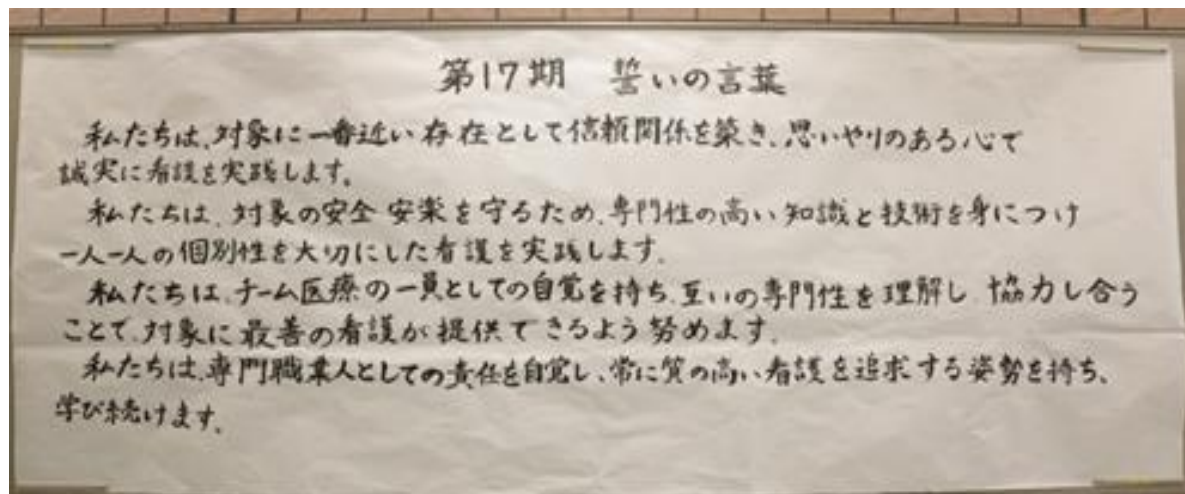 第17期 誓いの言葉
私たちは、対象に一番近い存在として信頼関係を築き、思いやりのある心で
誠実に看護を実践します。
私たちは、対象の安全 安楽を守るため、専門性の高い知識と技術を身につけ
一人一人の個別性を大切にした看護を実践します。
私たちは、チーム医療の一員としての自覚を持ち、互いの専門性を理解し 協力し合う
ことで、対象に最善の看護が提供できるよう努めます。
私たちは、専門職業人としての責任を自覚し、常に質の高い看護を追求する姿勢を持ち、
学び続けます。